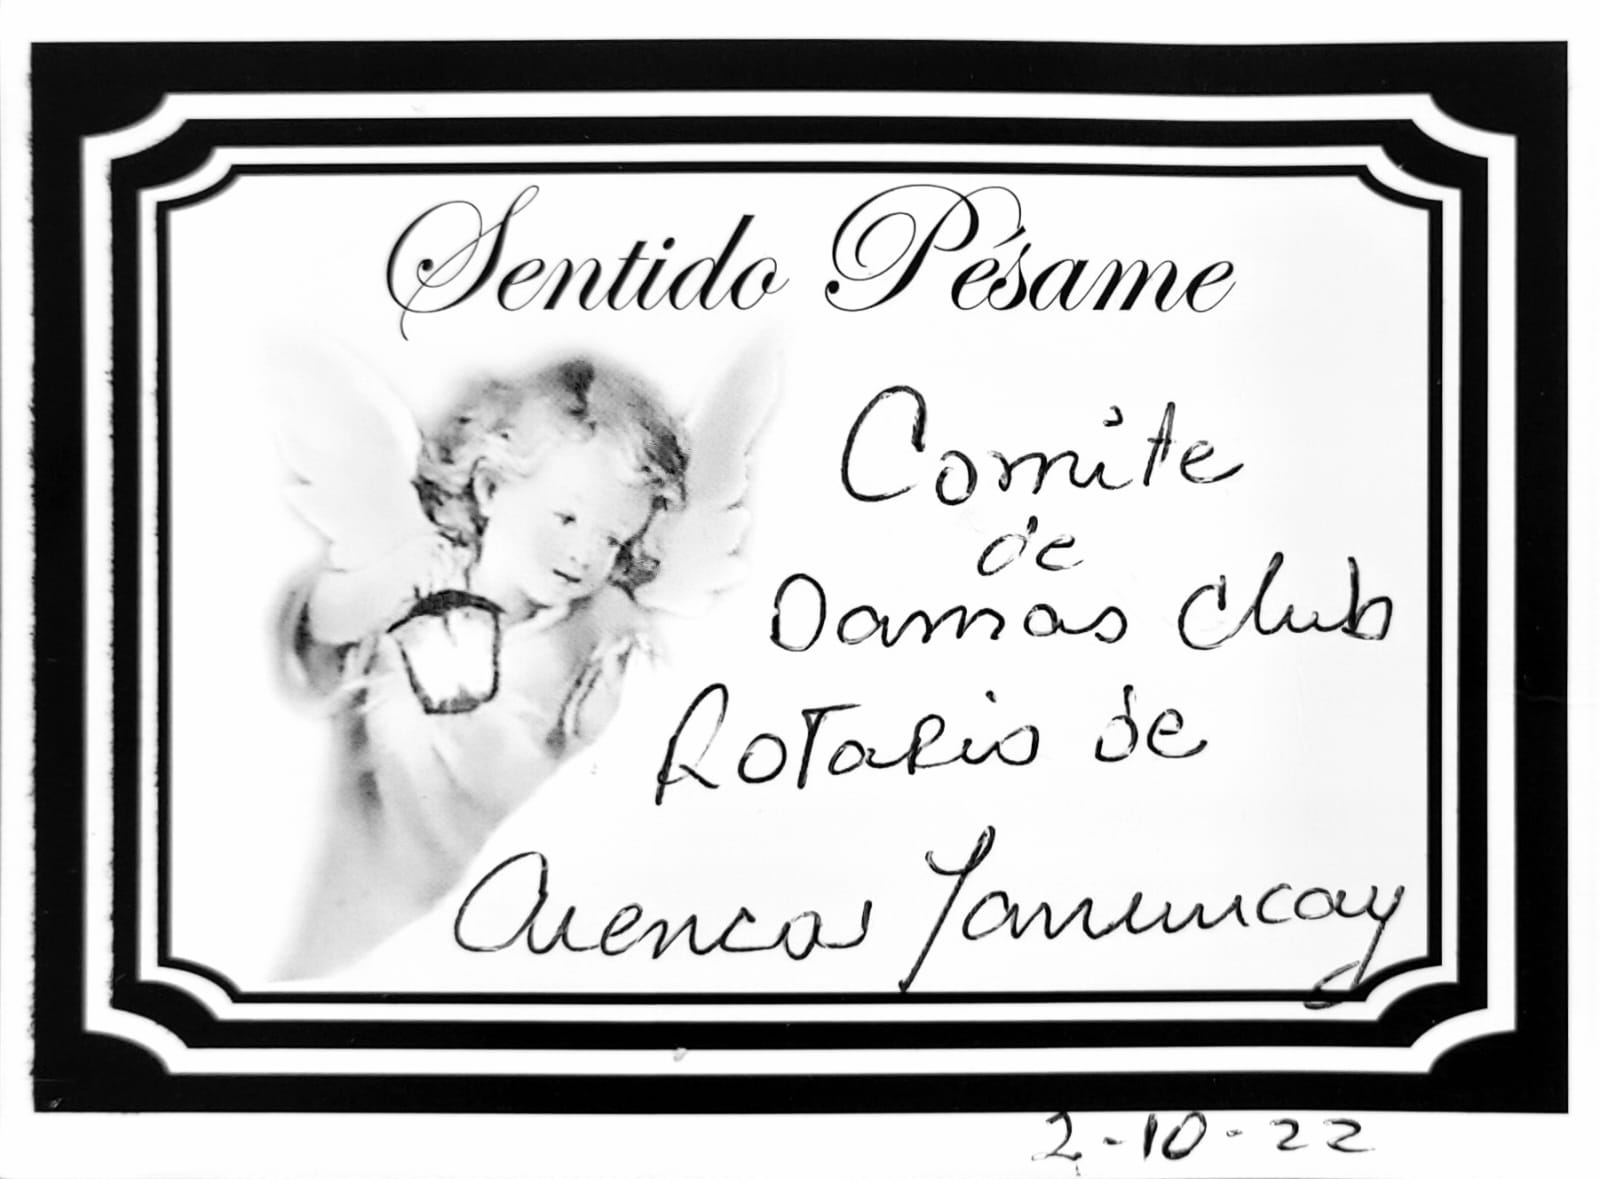 Sentido Pésame
Comite
de
Damas Club
Rotario de
Cuenca Yanuncay
2-10-22